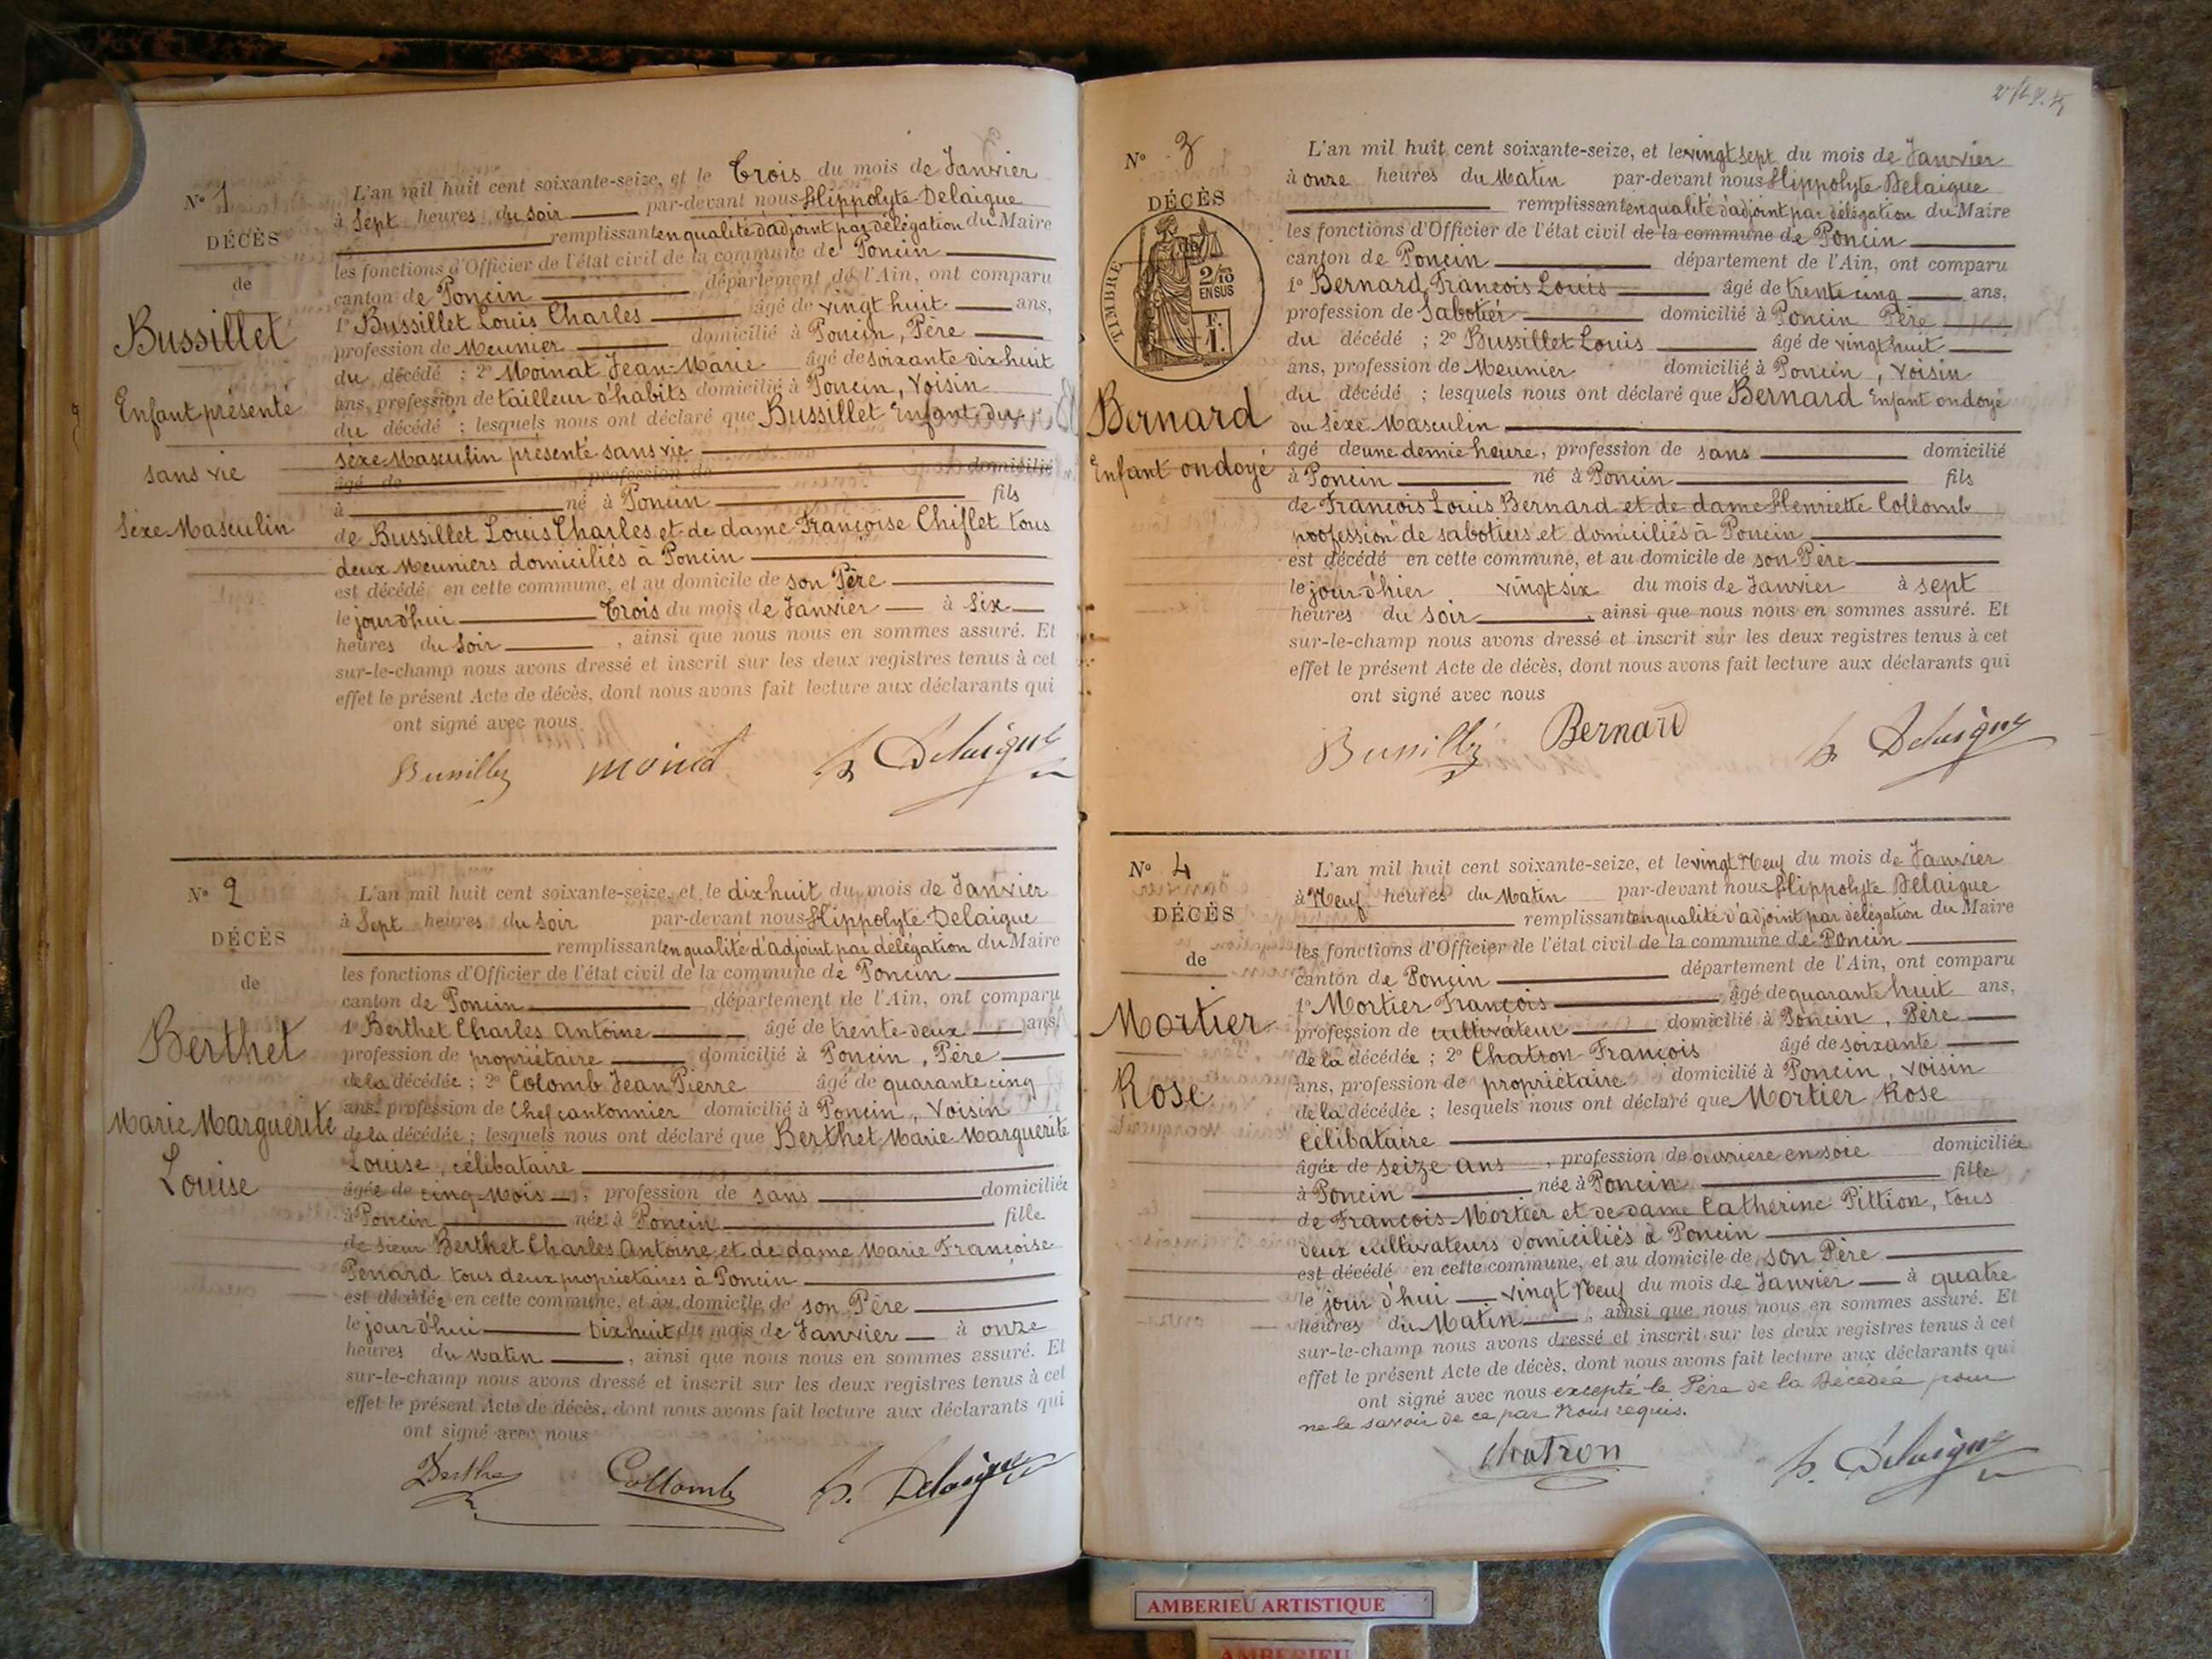 N° 1
DÉCÈS
de
Bussillet
Enfant présenté
sans vie
Sexe Masculin
L'an mil huit cent soixante-seize, et le Trois du mois de Janvier
à Sept heures du soir par-devant nous Hippolyte Delaigue
remplissant en qualité d'adjoint par délégation du Maire
les fonctions d'Officier de l'état civil de la commune de Poncin
canton de Poncin département de l'Ain, ont comparu
1° Bussillet Louis Charles âgé de vingt huit ans,
profession de Meunier domicilié à Poncin, Père
du décédé ; 2° Moinat Jean-Marie âgé de soixante dix huit
ans, profession de tailleur d'habits domicilié à Poncin, Voisin
du décédé ; lesquels nous ont déclaré que Bussillet Enfant du
sexe Masculin présenté sans vie
âgé de profession de domicilié
à né à Poncin fils
de Bussillet Louis Charles et de dame Françoise Chiflet tous
deux Meuniers domiciliés à Poncin
est décédé en cette commune, et au domicile de son Père
le jourd'hui Trois du mois de Janvier à Six
heures du Soir , ainsi que nous nous en sommes assuré. Et
sur-le-champ nous avons dressé et inscrit sur les deux registres tenus à cet
effet le présent Acte de décès, dont nous avons fait lecture aux déclarants qui
ont signé avec nous
h. Delaigue
N° 2
DÉCÈS
de
Berthet
Marie Marguerite
Louise
L'an mil huit cent soixante-seize, et le dix huit du mois de Janvier
à Sept heures du Soir par-devant nous Hippolyte Delaigue
remplissant en qualité d'adjoint par délégation du Maire
les fonctions d'Officier de l'état civil de la commune de Poncin
canton de Poncin département de l'Ain, ont comparu
1° Berthet Charles Antoine âgé de trente-deux ans,
profession de propriétaire domicilié à Poncin, Père
de la décédée ; 2° Colomb Jean Pierre âgé de quarante cinq
ans, profession de Chef cantonnier domicilié à Poncin, Voisin
de la décédée ; lesquels nous ont déclaré que Berthet Marie Marguerite
Louise, célibataire
âgée de cinq Mois , profession de sans domiciliée
à Poncin née à Poncin fille
de sieur Berthet Charles Antoine et de dame Marie Françoise
Penard tous deux propriétaires à Poncin
est décédée en cette commune, et au domicile de son Père
le jourd'hui Dix huit du mois de Janvier à onze
heures du Matin , ainsi que nous nous en sommes assuré. Et
sur-le-champ nous avons dressé et inscrit sur les deux registres tenus à cet
effet le présent Acte de décès, dont nous avons fait lecture aux déclarants qui
ont signé avec nous
Collomb h. Delaigue
N° 3
DÉCÈS
de
TIMBRE
2/10
EN SUS
F.
1.
Bernard
Enfant ondoyé
L'an mil huit cent soixante-seize, et le vingt sept du mois de Janvier
à onze heures du Matin par-devant nous Hippolyte Delaigue
remplissant en qualité d'adjoint par délégation du Maire
les fonctions d'Officier de l'état civil de la commune de Poncin
canton de Poncin département de l'Ain, ont comparu
1° Bernard François Louis âgé de trente cinq ans,
profession de Sabotier domicilié à Poncin Père
du décédé ; 2° Bussillet Louis âgé de vingt huit
ans, profession de Meunier domicilié à Poncin, Voisin
du décédé ; lesquels nous ont déclaré que Bernard Enfant ondoyé
du Sexe Masculin
âgé de une demie heure, profession de sans domicilié
à Poncin né à Poncin fils
de François Louis Bernard et de dame Henriette Collomb
profession de sabotiers et domiciliés à Poncin
est décédé en cette commune, et au domicile de son Père
le jour d'hier vingt six du mois de Janvier à sept
heures du soir , ainsi que nous nous en sommes assuré. Et
sur-le-champ nous avons dressé et inscrit sur les deux registres tenus à cet
effet le présent Acte de décès, dont nous avons fait lecture aux déclarants qui
ont signé avec nous
Bernard h. Delaigue
N° 4
DÉCÈS
de
Mortier
Rose
L'an mil huit cent soixante-seize, et le vingt Neuf du mois de Janvier
à Neuf heures du Matin par-devant nous Hippolyte Delaigue
remplissant en qualité d'adjoint par délégation du Maire
les fonctions d'Officier de l'état civil de la commune de Poncin
canton de Poncin département de l'Ain, ont comparu
1° Mortier François âgé de quarante huit ans,
profession de cultivateur domicilié à Poncin, Père
de la décédée ; 2° Chatron François âgé de soixante
ans, profession de propriétaire domicilié à Poncin, Voisin
de la décédée ; lesquels nous ont déclaré que Mortier Rose
célibataire
âgée de seize ans , profession de ouvrière en soie domiciliée
à Poncin née à Poncin fille
de François Mortier et de dame Catherine Pittion, tous
deux cultivateurs domiciliés à Poncin
est décédé en cette commune, et au domicile de son Père
le jour d'hui vingt Neuf du mois de Janvier à quatre
heures du Matin , ainsi que nous nous en sommes assuré. Et
sur-le-champ nous avons dressé et inscrit sur les deux registres tenus à cet
effet le présent Acte de décès, dont nous avons fait lecture aux déclarants qui
ont signé avec nous excepté le Père de la Décédée pour
ne le savoir de ce par Nous requis.
Chatron h. Delaigue
AMBERIEU ARTISTIQUE
AMBERIEU